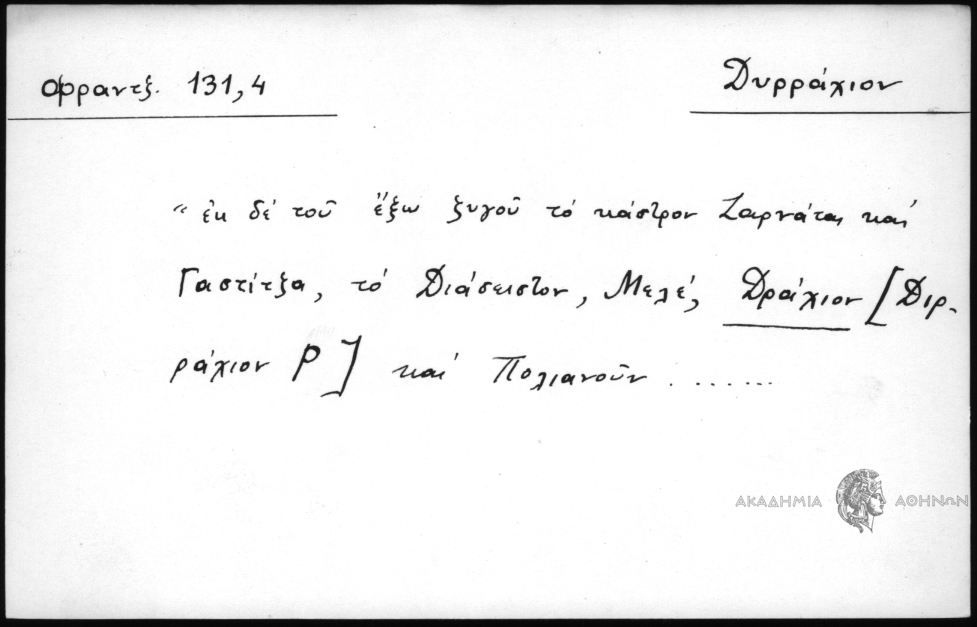 Φραντζ. 131,4
Δυρράχιον
"ἐκ δέ τοῦ ἔξω ζυγοῦ τό κάστρον Ζαρνάτας καί
Γαστίτζα, τό Διάσειστον, Μελέ, Δράχιον [Διρ-
ράχιον P] καί Πολιανοῦν .......
ΑΚΑΔΗΜΙΑ ΑΘΗΝΩΝ